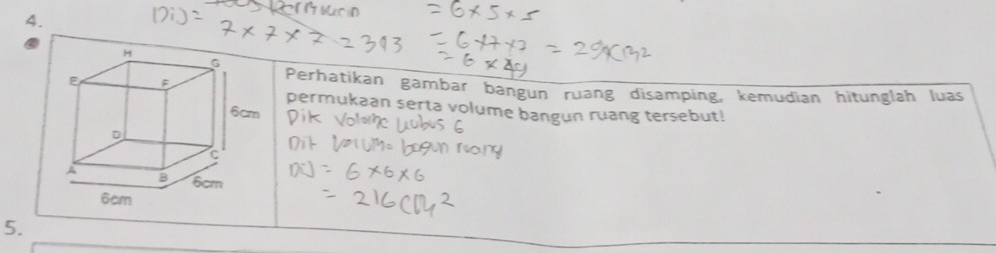 4.
= 6 × 5 × 5
Dij = 7 × 7 × 7 = 393
= 6 × 7 × 7 = 29
= 6 × 49
H
G
E
F
D
C
A
B
6cm
6cm
6cm
Perhatikan gambar bangun ruang disamping, kemudian hitunglah luas
permukaan serta volume bangun ruang tersebut!
Dik Volome kubus 6
Dit Volume bagun ruang
Dij = 6 × 6 × 6
= 216 cm²
5.